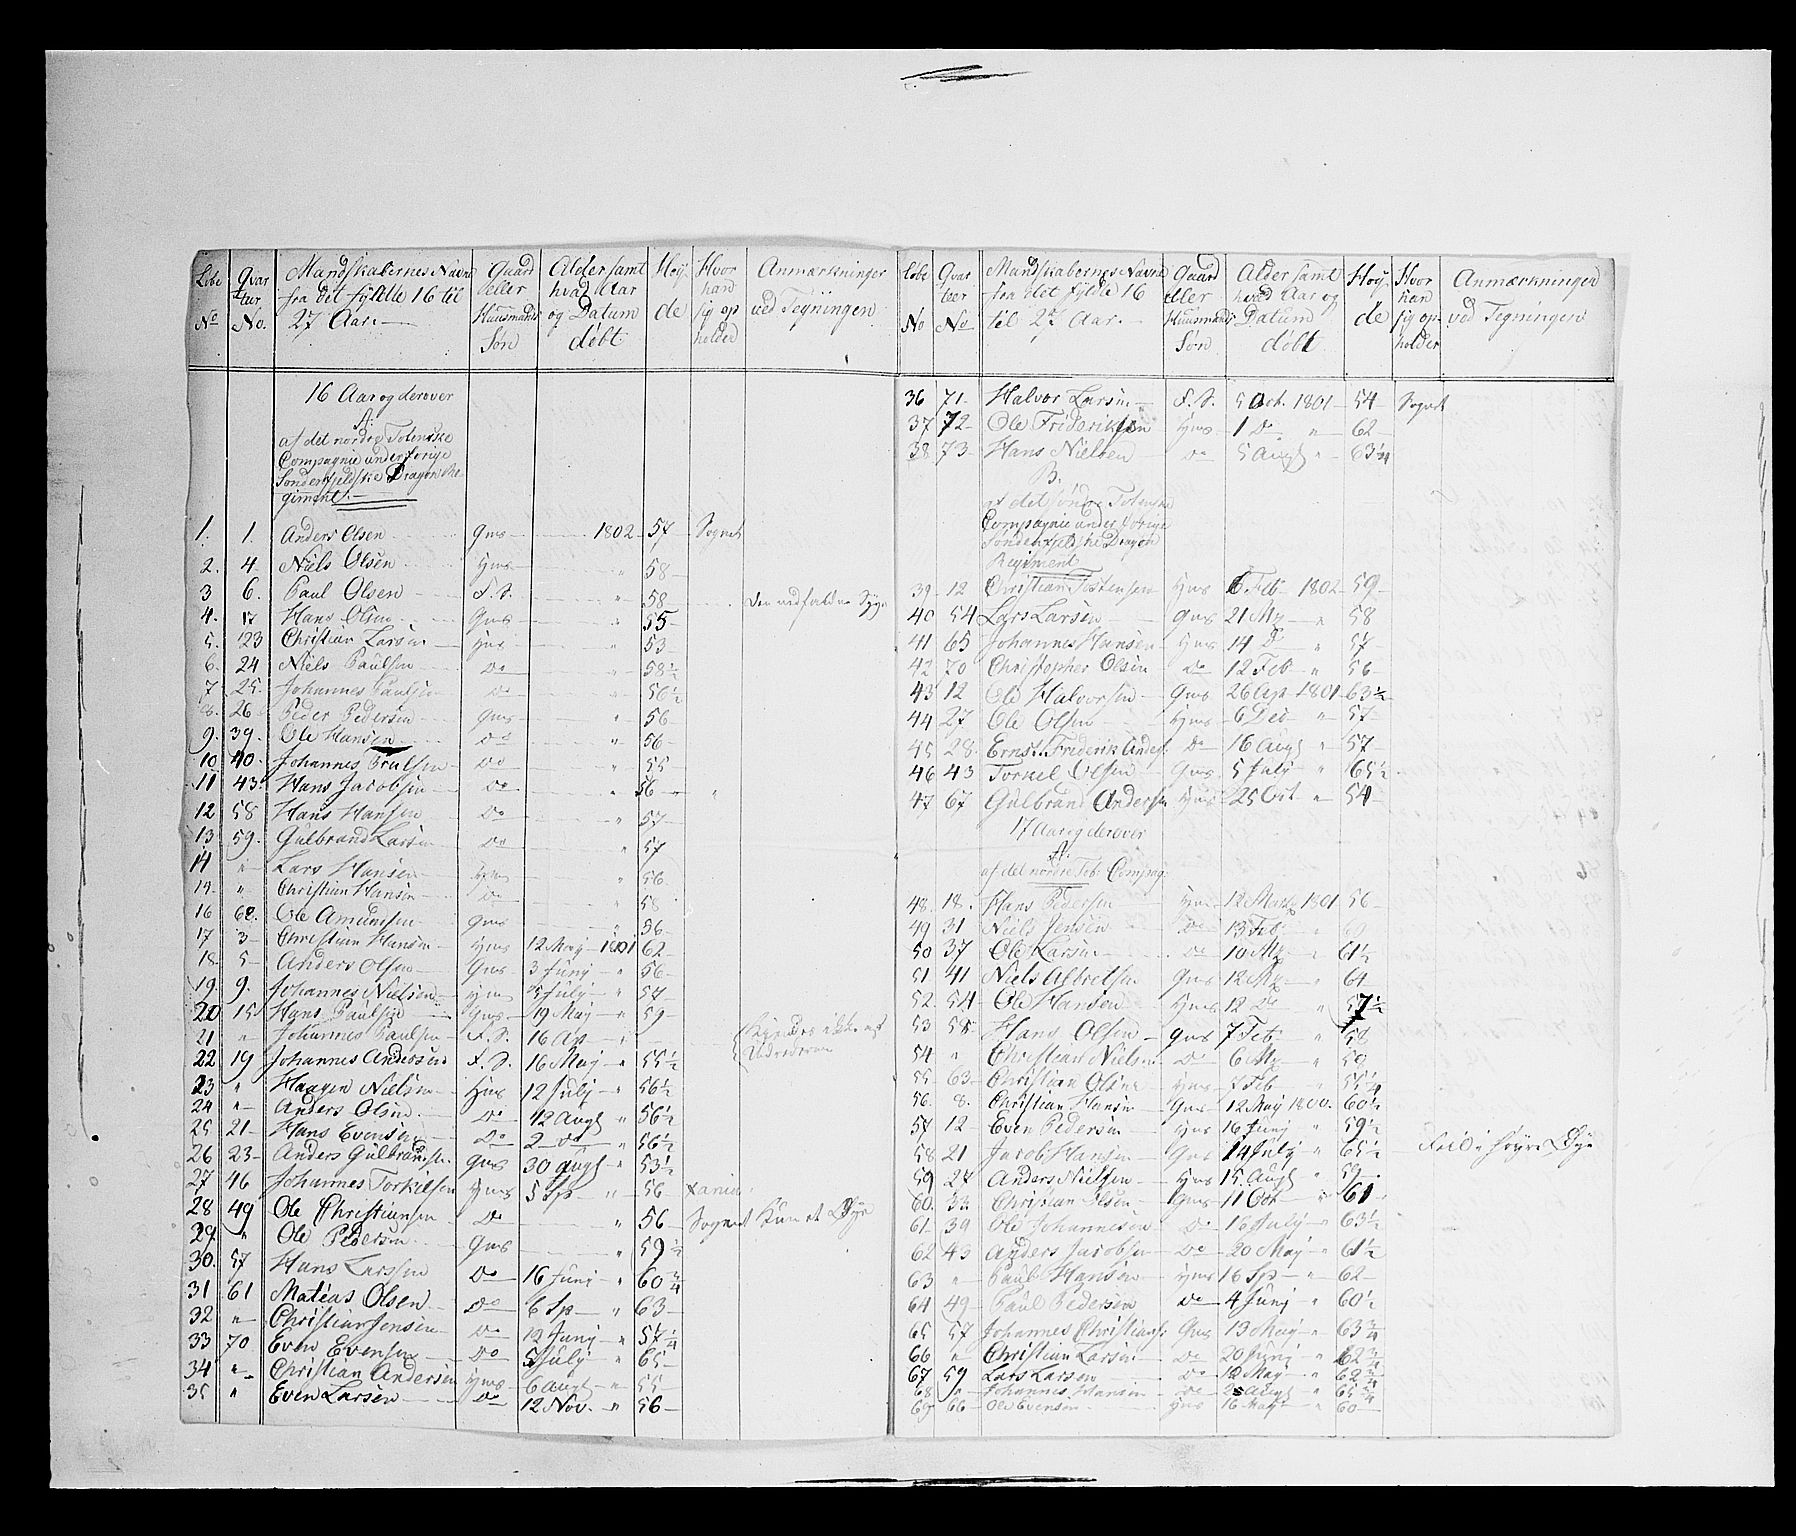 Løbe No | Qvarteer No. | Mandskabernes Navne fra det fyldte 16 til 27 Aar. | Gaard eller Huusmands Søn | Alder samt hvad Aar og Datum døbt | Høyde | Hvor han sig opholder | Anmærkninger ved Tegningen
16 Aar og derover
A.
af det nordre Totenske
Compagnie under forrige
Søndenfjeldske Dragon Re-
giment
1. 1. Anders Olsen Gms 1802 57 Sognet
2. 4. Niels Olsen Hms " 58
3 6. Paul Olsen S.S. " 58
4. 17 Hans Olsen Gms " 55
5. 23 Christian Larsen Hms " 53
6. 24 Niels Paulsen Do " 58½
7 25. Johannes Paulsen Do " 56½
8. 26 Peder Pedersen Gms " 56
9. 39. Ole Hansen Do " 56
10 40. Johannes Do " 55
11 43. Hans Jacobsen Do " 56 "
12 58 Hans Hansen Do " 57
13 59. Gulbrand Larsen Do " 57
14 " Lars Hansen Hms " 56
" Christian Hansen Do " 58
16 62. Ole Amundsen Gms " 56
17 3 Christian Hansen Hms 12 May 1801 62
18 5 Anders Olsen Gms 3 Junj " 56
19 9. Johannes Nielsen Hms July " 57
20 15 Hans Paulsen Gms 19 May " 59
21 " Johannes Paulsen S.S. 16 Ap "
22 19 Johannes Andersen S.S. 16 May " 55½
23 " Haagen Nielsen Hms 12 July " 56½
24 " Anders Olsen Do 12 Augt " 56½
25 21 Hans Evensen Do 2 do " 56½
26 23 Anders Gulbrandsen Gms 30 Augt " 53½
27 46 Johannes Torkilsen Hms 5 Sp " 56
28 49 Ole Christiansen Do " 56 Sognet Kun et Øye
29 " Ole Pedersen Gms " 59½
30. 57 Hans Larssen Do 16 Junj " 60¾
31 61 Matias Olsen Do 6 Sp " 63
32 " Christian Jensen Do 12 Junj " 57¼
33 70 Even Evensen Do 5 July " 65
34 " Christian Andersen Hms 6 Augt " 55
35 " Even Larsen Do 12 Nov. " 56
Løbe No | Qvarteer No | Mandskabernes Navne fra det fyldte 16 til 27 Aar. | Gaard eller Huusmands Søn | Alder samt hvad Aar og Datum døbt | Høyde | Hvor han sig opholder | Anmærkningen ved Tegningen
36 71 Halvor Larsen S.S. 5 Oct. 1801 54 Sognet
37 72 Ole Frideriksen Hms 1 Do " 62
38 73 Hans Nielsen Do 5 Augt " 63¼
B.
af det søndre Totenske
Compagnie under forrige
Søndenfjelske Dragon
Regiment
39 12 Christian Hms 6 Feb 1802 59
40 54 Lars Larsen Gms 21 Mz " 58
41 65 Johannes Hansen Hms 14 D " 57
42 70 Christopher Olsen Do 12 Feb " 56
43 12 Ole Halvorsen Gms 26 1801 63½
44 27 Ole Olsen Hms 6 Dec " 57
45 28. Ernst Friderik Anders. Do 16 Augt " 57
46 43 Torkel Olsen Gms 5 July " 65½
47 67 Gulbrand Andersen Hms 25 Oct " 54
17 Aar og derover
A.
af det nordre Tot. Compag:
48 18. Hans Pedersen Hms 12 1801 56
49 31 Niels Jensen Do 13 Feb "
50 37 Ole Larsen Do 10 Mz " 61½
51 41 Niels Gms 12 Mz " 61
52. 54 Ole Hansen Hms 12 Do " 57½
53 58 Hans Olsen Gms 7 Feb " 58
54 " Christian Nielsen Do 6 Mz " 59
55 63 Christian Olsen Hms 7 Feb " 55¼
56. 8. Christian Hansen Gms 12 May 1800. 60½
57 12 Even Pedersen Hms 16 Junj " 59½
58 21 Jacob Hansen Gms 14 July " 65½ Feil i høyre Øye
59 27 Anders Nielsen Hms 15 Augt " 59
60. 32 Christian Olsen Gms 11 Oct " 61
61 39 Ole Johannesen Do 16 July " 63½
62 43 Anders Jacobsen Do 20 May " 61½
63 " Paul Hansen Hms 16 Sp " 62
64 49 Paul Pedersen Do 4 Junj " 60½
65 57 Johannes Christians. Gms 13 May " 63¾
66 " Christian Larsen Do 20 Junj " 62¾
67 59 Lars Larsen Do 12 May " 62¾
68 " Johannes Johansen Do Augt " 65¾
69 66 Ole Evensen Hms 16 May " 60